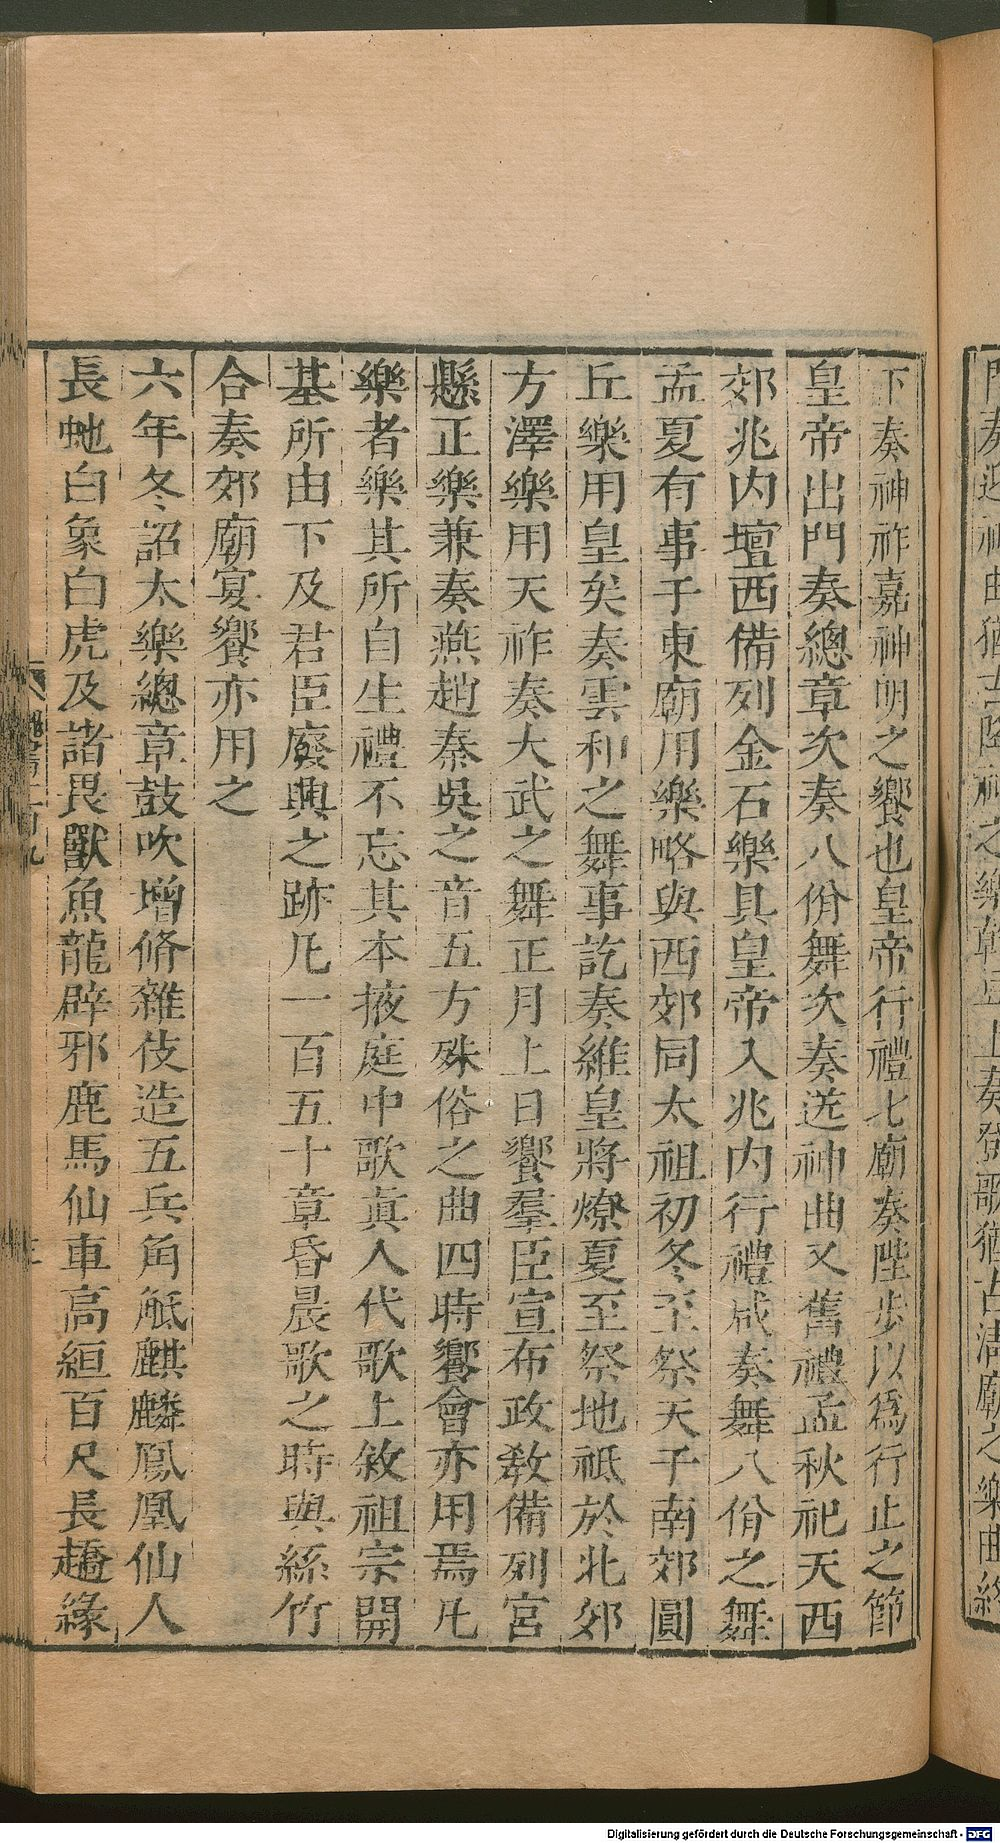 下奏神祚嘉神明之饗也皇帝行禮七廟奏陛步以爲行止之節
皇帝出門奏總章次奏八佾舞次奏送神曲又舊禮孟秋祀天西
郊兆内壇西備列金石樂具皇帝入兆内行禮咸奏舞八佾之舞
孟夏有事于東廟用樂略與西郊同太祖初冬至祭天于南郊圓
丘樂用皇矣奏雲和之舞事訖奏維皇將燎夏至祭地祗於北郊
方澤樂用天祚奏大武之舞正月上日饗羣臣宣布政教備列宮
懸正樂兼奏燕趙秦吳之音五方殊俗之曲四時饗會亦用焉凡
樂者樂其所自生禮不忘其本掖庭中歌眞人代歌上敘祖宗開
基所由下及君臣廢興之跡凡一百五十章昏晨歌之時與絲竹
合奏郊廟宴饗亦用之
六年冬詔太樂總章鼓吹增脩雜伎造五兵角觝麒麟鳳凰仙人
長虵白象白虎及諸畏獸魚龍辟邪鹿馬仙車高絙百尺長趫緣
Digitalisierung gefördert durch die Deutsche Forschungsgemeinschaft - DFG